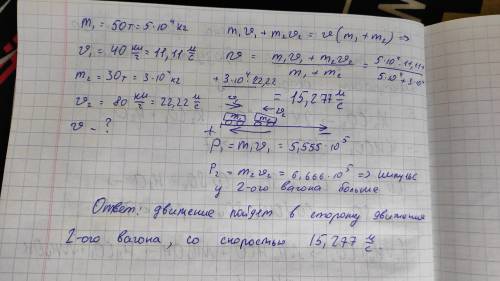 m₁ = 50т = 5·10⁴ кг
v₁ = 40 км/ч = 11,11 м/с
m₂ = 30т = 3·10⁴ кг
v₂ = 80 км/ч = 22,22 м/с
v - ?
m₁v₁ + m₂v₂ = v(m₁ + m₂) ⇒
v = (m₁v₁ + m₂v₂)/(m₁ + m₂) = (5·10⁴·11,11
+ 3·10⁴·22,22)/(5·10⁴+3·10⁴)
= 15,277 м/с
v₁ ← v₂
m₁ m₂
+ −
P₁ = m₁v₁ = 5,555·10⁵
P₂ = m₂v₂ = 6,666·10⁵ ⇒ импульс
у 2-ого вагона больше
Ответ: движение пойдет в сторону движения
2-ого вагона, со скоростью 15,277 м/с.